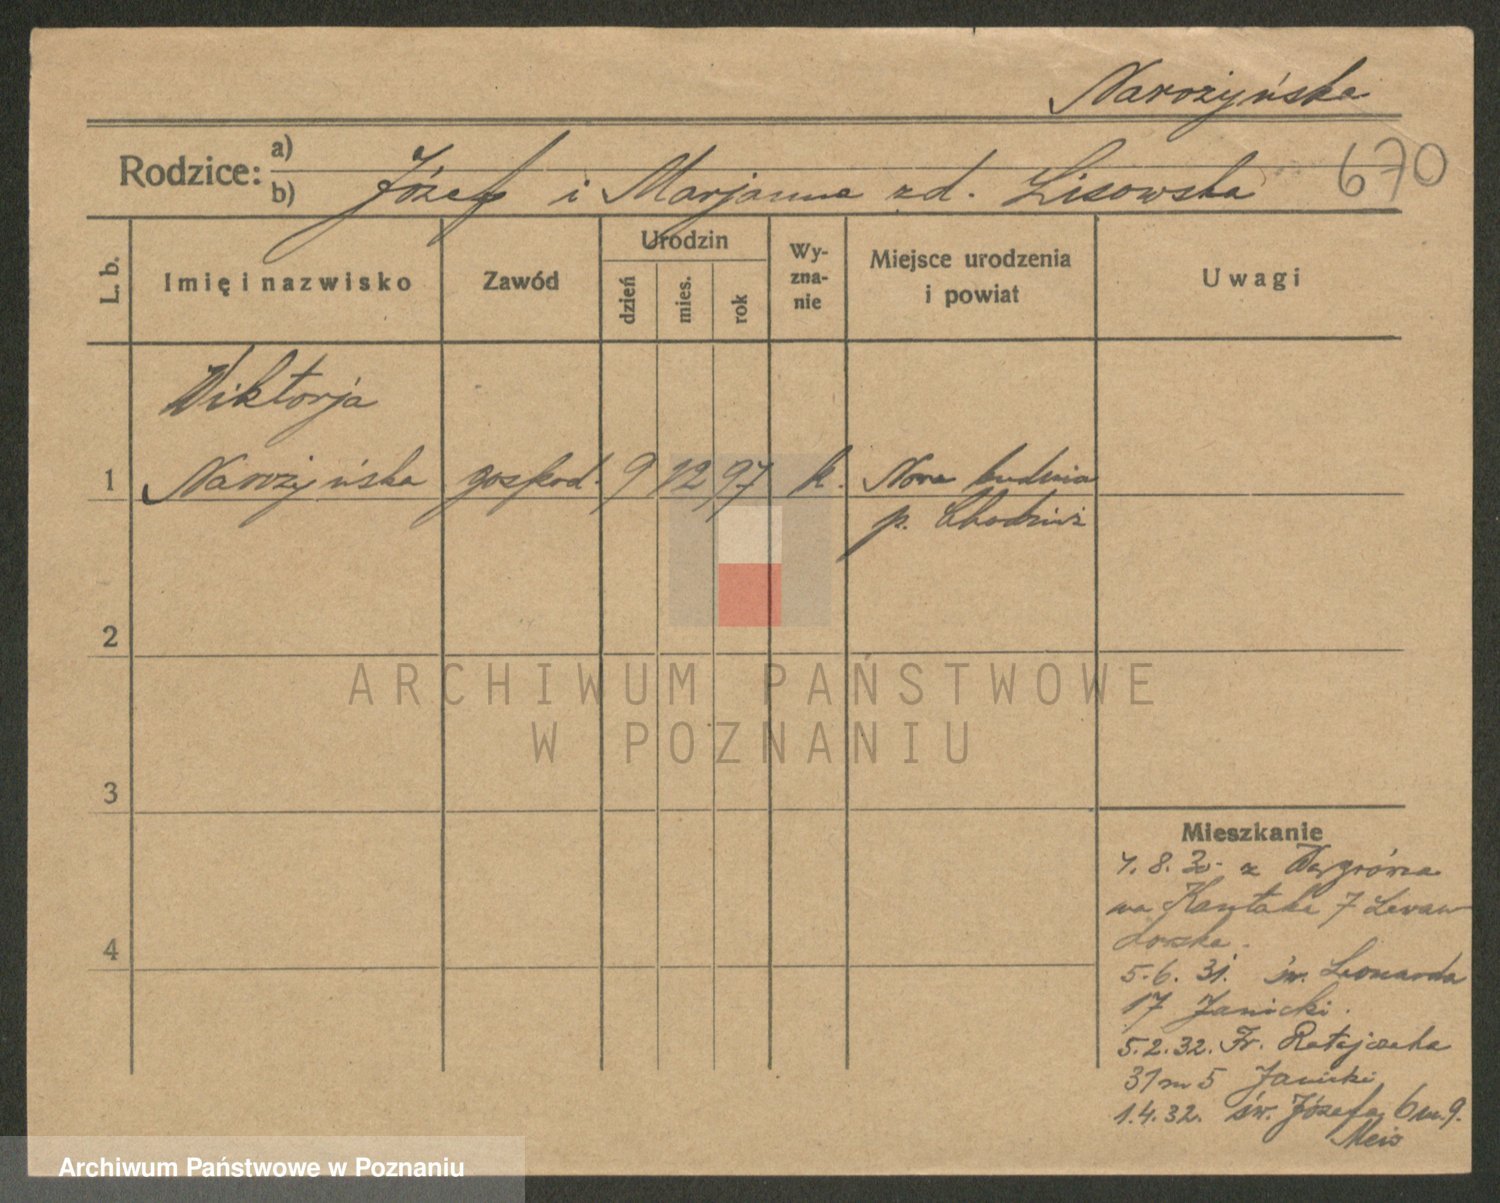 Narożyńska
670
Rodzice: a)
b) Józef i Marjanna zd. Lisowska
L. b.
Imię i nazwisko
Zawód
Urodzin
dzień
mies.
rok
Wy-
zna-
nie
Miejsce urodzenia
i powiat
Uwagi
Wiktorja
1 Narożyńska gospod. 9 12 97 k. Nowa budnia
p. Chodzież
2
3
4
Mieszkanie
7.8.30. z Wągrówca
na Kantaka 7 Lewan
dowska.
5.6.31. św. Leonarda
17 Janicki.
5.2.32. Fr. Ratajczaka
37 m 5 Janicki
1.4.32. św. Józefa 6 m. 9.
ARCHIWUM PAŃSTWOWE
W POZNANIU
Archiwum Państwowe w Poznaniu